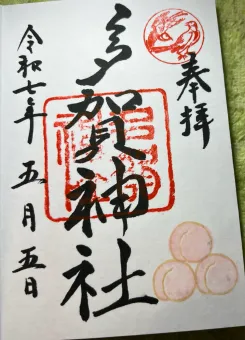 奉拝
多賀神社
令和七年五月五日